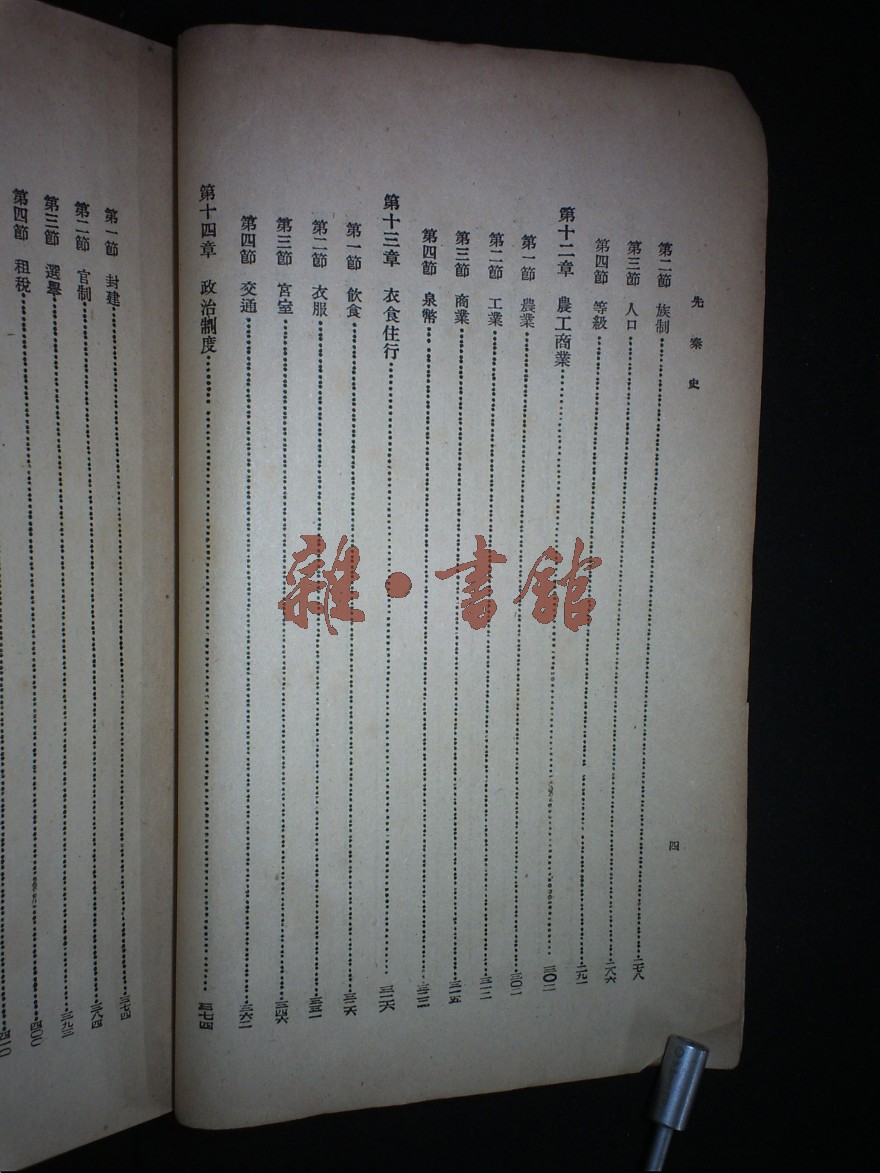 先秦史
四
第二節　族制……二七八
第三節　人口……二八六
第四節　等級……二九一
第十二章　農工商業……三〇一
第一節　農業……三〇一
第二節　工業
第三節　商業……三一五
第四節　泉幣
第十三章　衣食住行
第一節　飲食
第二節　衣服
第三節　宮室……三四六
第四節　交通……三六二
第十四章　政治制度……三七四
第一節　封建……三七四
第二節　官制……三八四
第三節　選舉……三九三
第四節　租稅……四〇〇
雜·書館